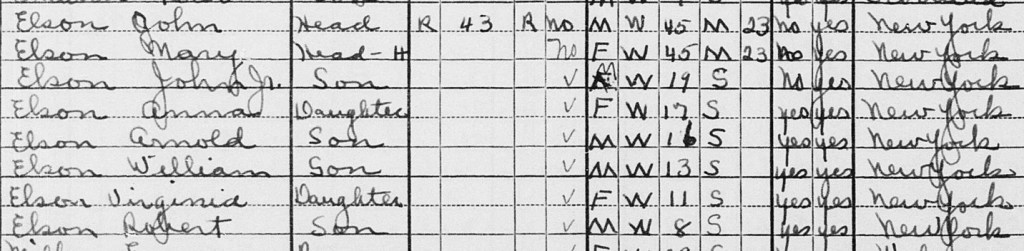 Elson John Head R 43 R no M W 45 M 23 no yes New York
Elson Mary Head-H no F W 45 M 23 no yes New York
Elson John Jr. Son √ M W 19 S no yes New York
Elson Anna Daughter √ F W 17 S yes yes New York
Elson Arnold Son √ M W 16 S yes yes New York
Elson William Son √ M W 13 S yes yes New York
Elson Virginia Daughter √ F W 11 S yes yes New York
Elson Robert Son √ M W 8 S yes yes New York